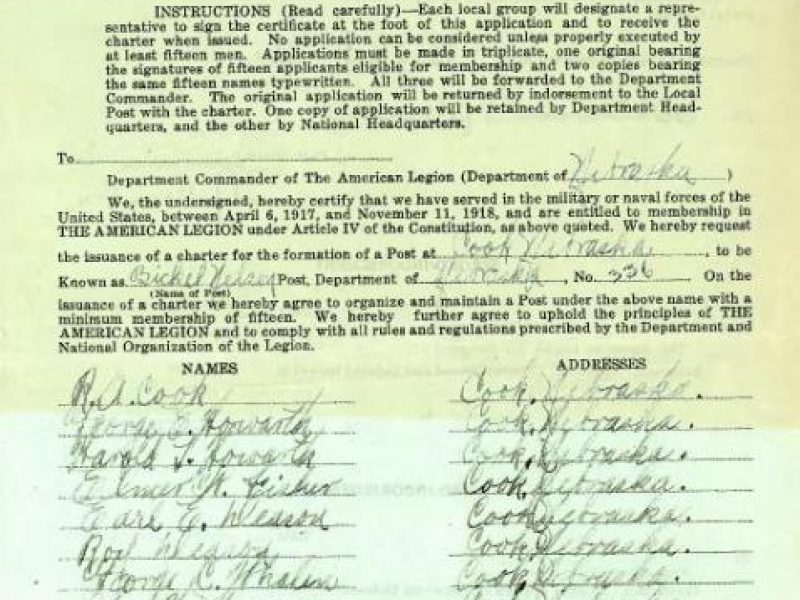 INSTRUCTIONS (Read carefully)—Each local group will designate a repre-
sentative to sign the certificate at the foot of this application and to receive the
charter when issued. No application can be considered unless properly executed by
at least fifteen men. Applications must be made in triplicate, one original bearing
the signatures of fifteen applicants eligible for membership and two copies bearing
the same fifteen names typewritten. All three will be forwarded to the Department
Commander. The original application will be returned by indorsement to the Local
Post with the charter. One copy of application will be retained by Department Head-
quarters, and the other by National Headquarters.
To
Department Commander of The American Legion (Department of Nebraska )
We, the undersigned, hereby certify that we have served in the military or naval forces of the
United States, between April 6, 1917, and November 11, 1918, and are entitled to membership in
THE AMERICAN LEGION under Article IV of the Constitution, as above quoted. We hereby request
the issuance of a charter for the formation of a Post at Cook Nebraska , to be
Known as Post, Department of Nebraska , No. 336 On the
(Name of Post)
issuance of a charter we hereby agree to organize and maintain a Post under the above name with a
minimum membership of fifteen. We hereby further agree to uphold the principles of THE
AMERICAN LEGION and to comply with all rules and regulations prescribed by the Department and
National Organization of the Legion.
NAMES ADDRESSES
R. A. Cook Cook, Nebraska.
George E. Howarth Cook, Nebraska.
Harold Howarth Cook, Nebraska.
Elmer W. Cook, Nebraska.
Earl E. Cook, Nebraska.
Cook, Nebraska.
George C. Whalen Cook, Nebraska.